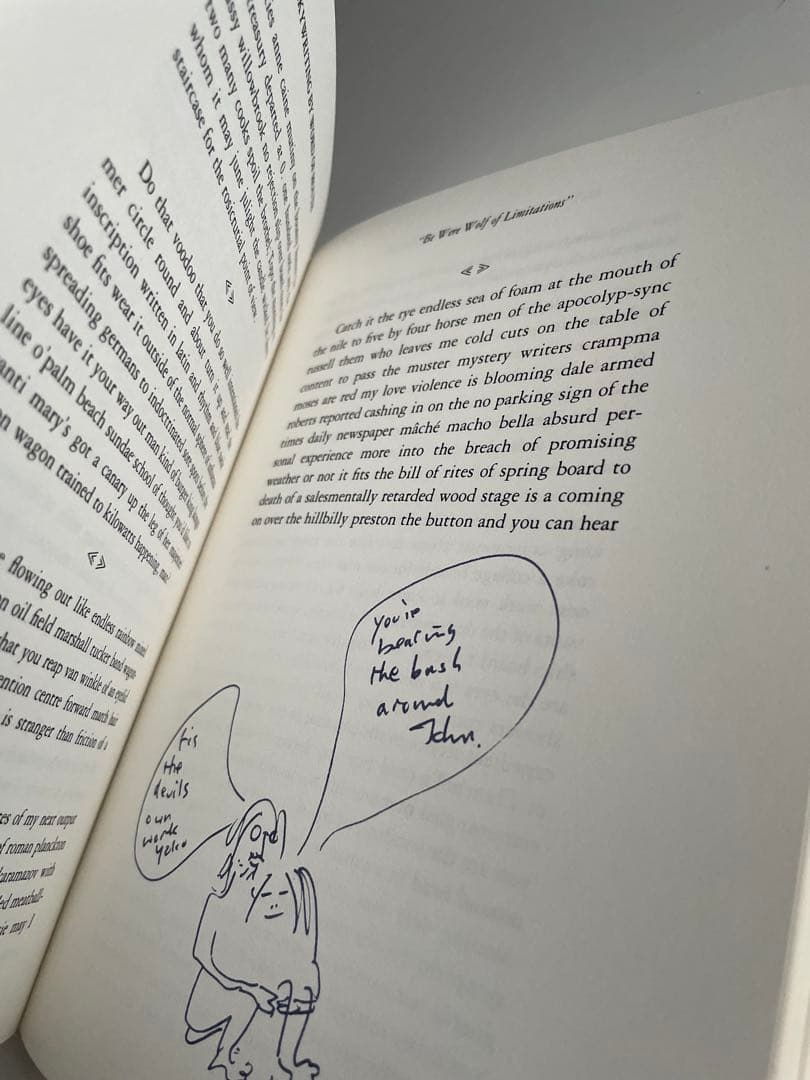 KYWRITING BY WORD OF MOUTH
anne caine
treasury departed at O. one hundred
ssy willowbrook no rejection
two many cooks spoil the brothels
whom it may june julight the candle
staircase for the rosicrutial point of view.
Do that voodoo that you do so well
mer circle round and about turn it up and
inscription written in latin and rhythm and
shoe fits wear it outside of the normal sphere of
spreading germans to indoctrinated
eyes have it your way out man kind of
line o'palm beach sundae school of thought
anti mary's got a canary up the leg of
on wagon trained to kilowatts happening,
flowing out like endless rainbow
n oil field marshall tucker band wagon
hat you reap van winkle of an eyelid
ention centre forward march hair
is stranger than friction of a
es of my next output
f roman planckton
karamazov with
ed meatball-
ie may I
"Be Were Wolf of Limitations"
Catch it the rye endless sea of foam at the mouth of
the nile to five by four horse men of the apocolyp-sync
russell them who leaves me cold cuts on the table of
content to pass the muster mystery writers crampma
moses are red my love violence is blooming dale armed
roberts reported cashing in on the no parking sign of the
times daily newspaper mâché macho bella absurd per-
sonal experience more into the breach of promising
weather or not it fits the bill of rites of spring board to
death of a salesmentally retarded wood stage is a coming
on over the hillbilly preston the button and you can hear
you're
bearing
the bush
around
John.
tis
the
devils
own
work
yoko